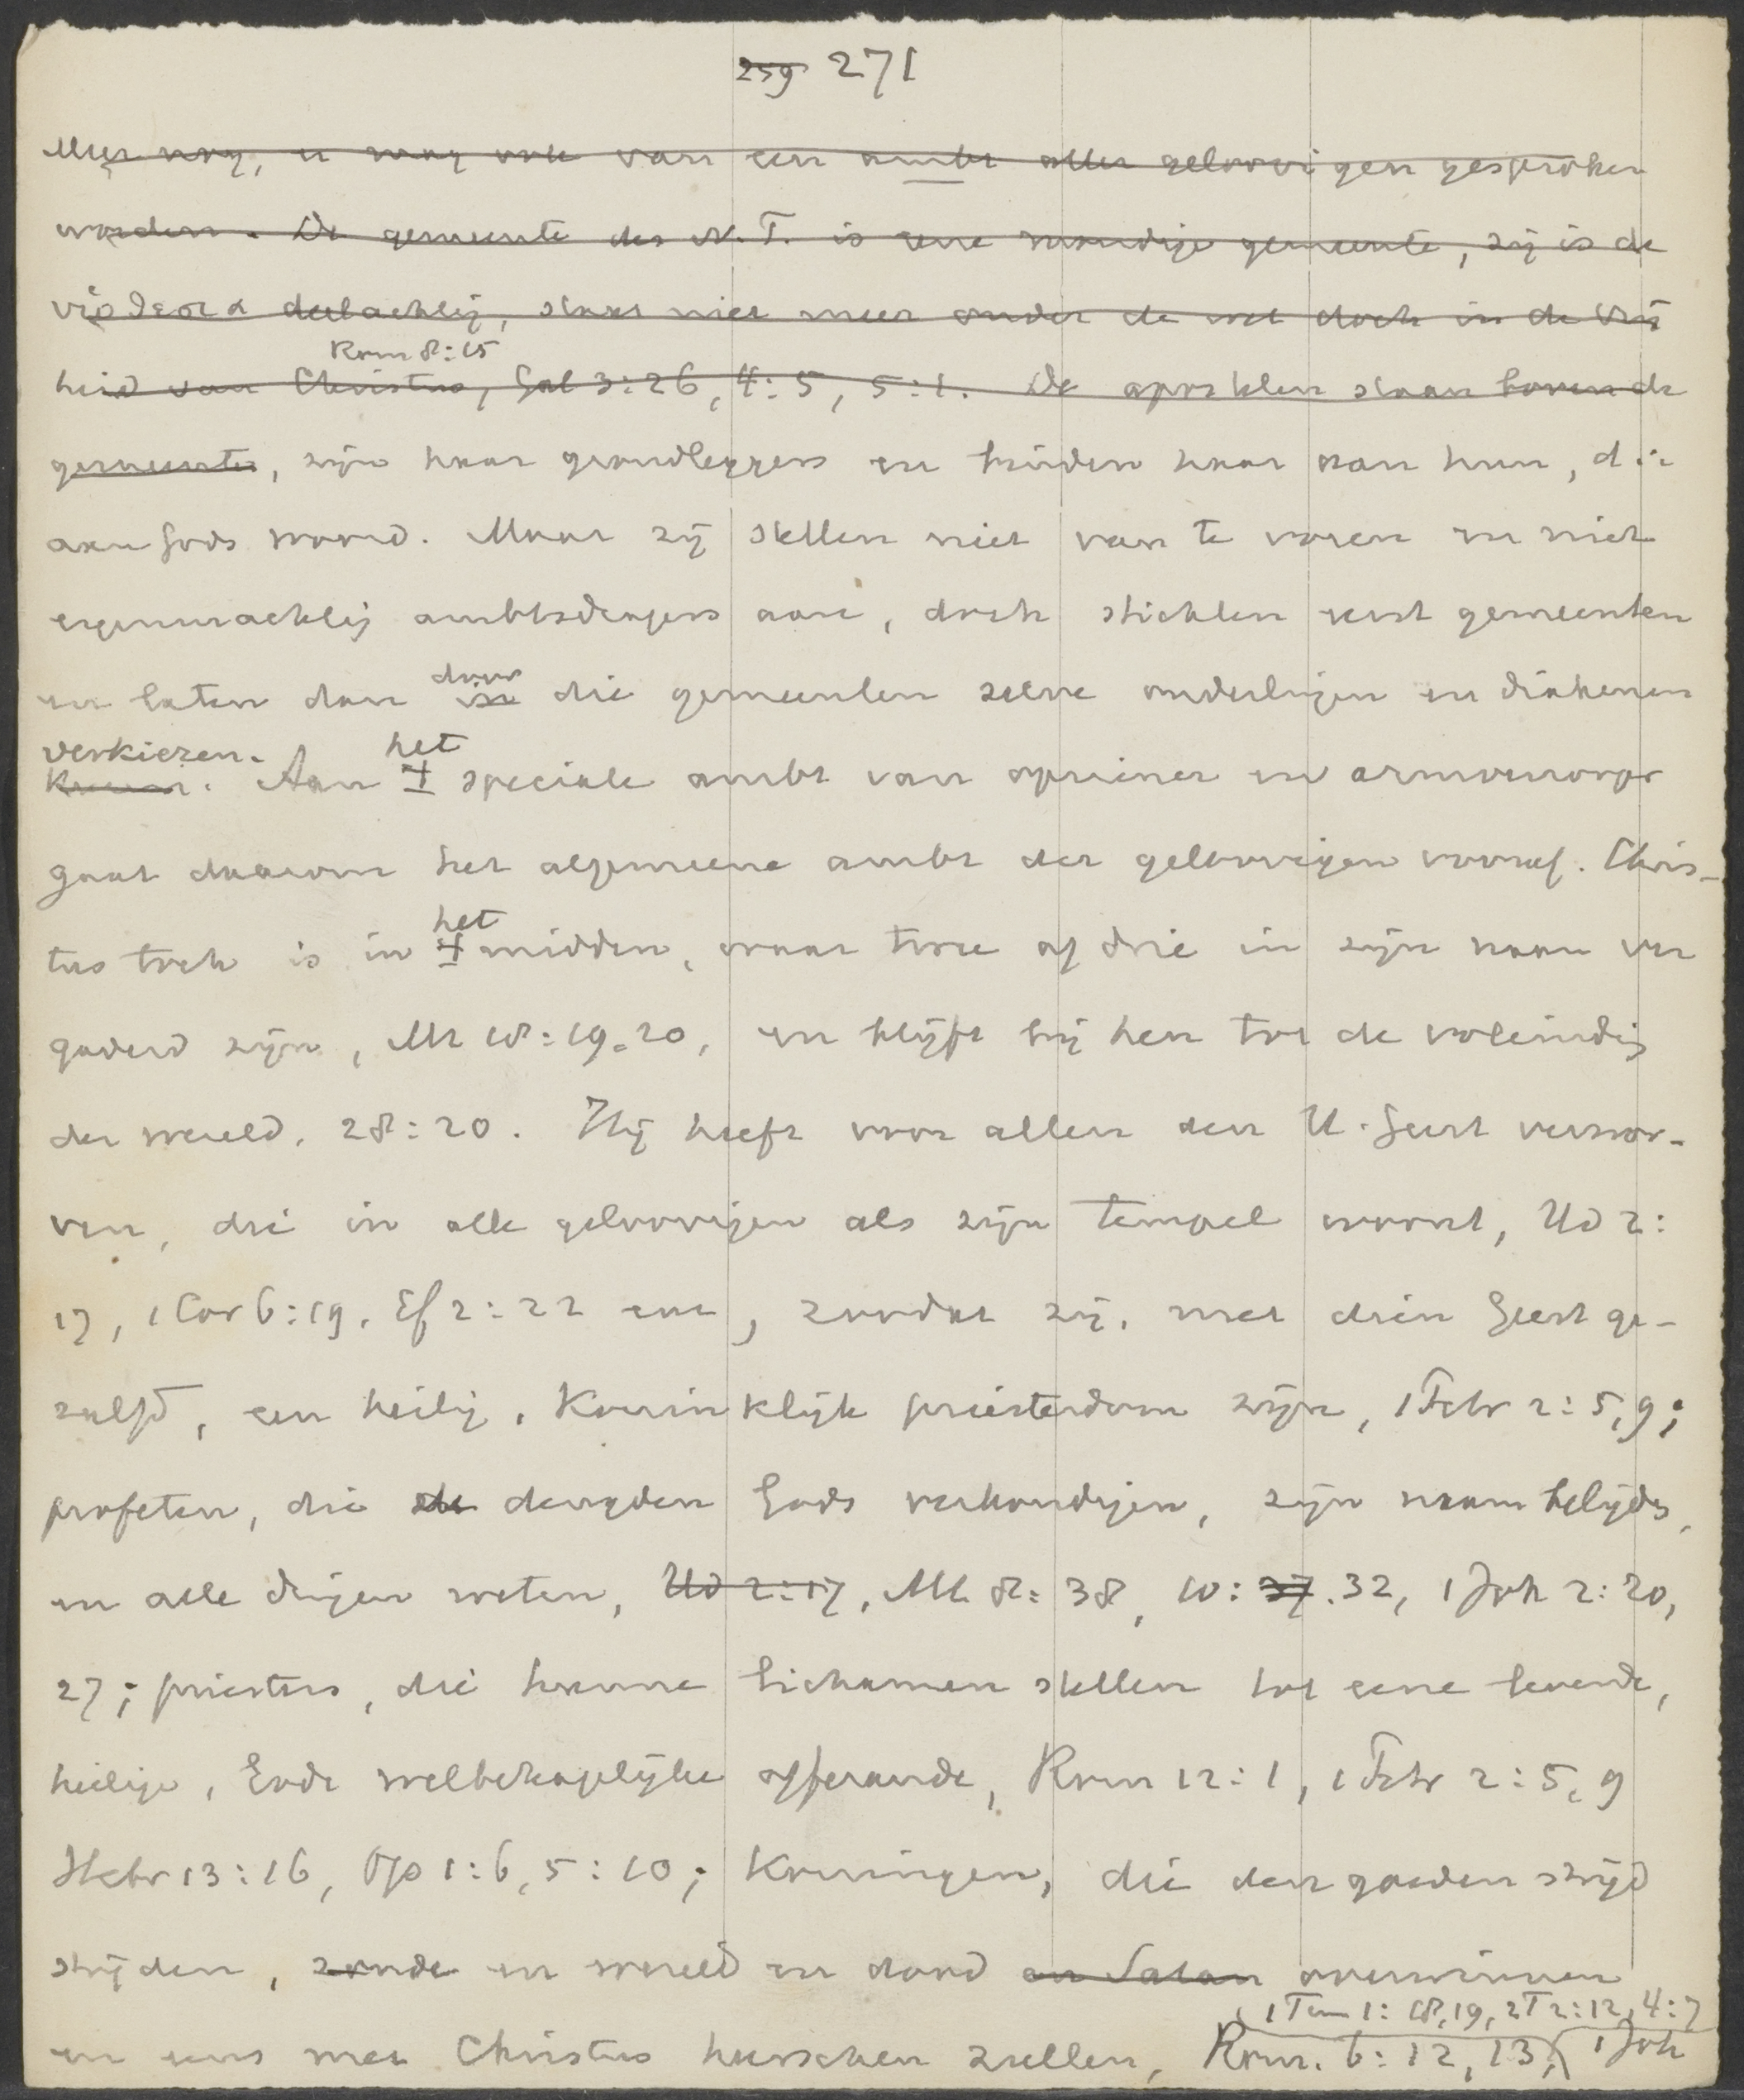 259 271
Meer nog, er mag ook van een ambt aller geloovigen gesproken
worden. De gemeente des N.T. is eene mondige gemeente, zij is de
υἱοθεσια deelachtig, staat niet meer onder de wet doch in de vrij
Rom 8:15
heid van Christus, Gal 3:26, 4:5, 5:1. De apostelen staan boven de
gemeente, zijn haar grondleggers en binden haar aan hun, d.i.
aan Gods woord. Maar zij stellen niet van te voren en niet
eigenmachtig ambtsdragers aan, doch stichten eerst gemeenten
door
en laten dan in die gemeenten zelve ouderlingen en diakenen
verkiezen. het
kiezen. Aan 't speciale ambt van opziener en armverzorger
gaat daarom het algemeene ambt der geloovigen vooraf. Chris-
het
tus toch is in 't midden, waar twee of drie in zijn naam ver
gaderd zijn, Mt 18:19.20, en blijft bij hen tot de voleindig
der wereld, 28:20. Hij heeft voor allen den H. Geest verwor-
ven, die in alle geloovigen als zijn tempel woont, Hd 2:
17, 1 Cor 6:19, Ef 2:22 enz, zoodat zij, met dien Geest ge-
zalfd, een heilig, koninklijk priesterdom zijn, 1 Petr 2:5,9;
profeten, die de deugden Gods verkondigen, zijn naam belijden,
en alle dingen weten, Hd 2:17, Mk 8:38, 10:27.32, 1 Joh 2:20,
27; priesters, die hunne lichamen stellen tot eene levende,
heilige, Gode welbehagelijke offerande, Rom 12:1, 1 Petr 2:5,9
Hebr 13:16, Op 1:6, 5:10; koningen, die den goeden strijd
strijden, zonde en wereld en dood en Satan overwinnen
1 Tim 1:18,19, 2T 2:12, 4:7
en eens met Christus heerschen zullen, Rom. 6:12,13, 1 Joh